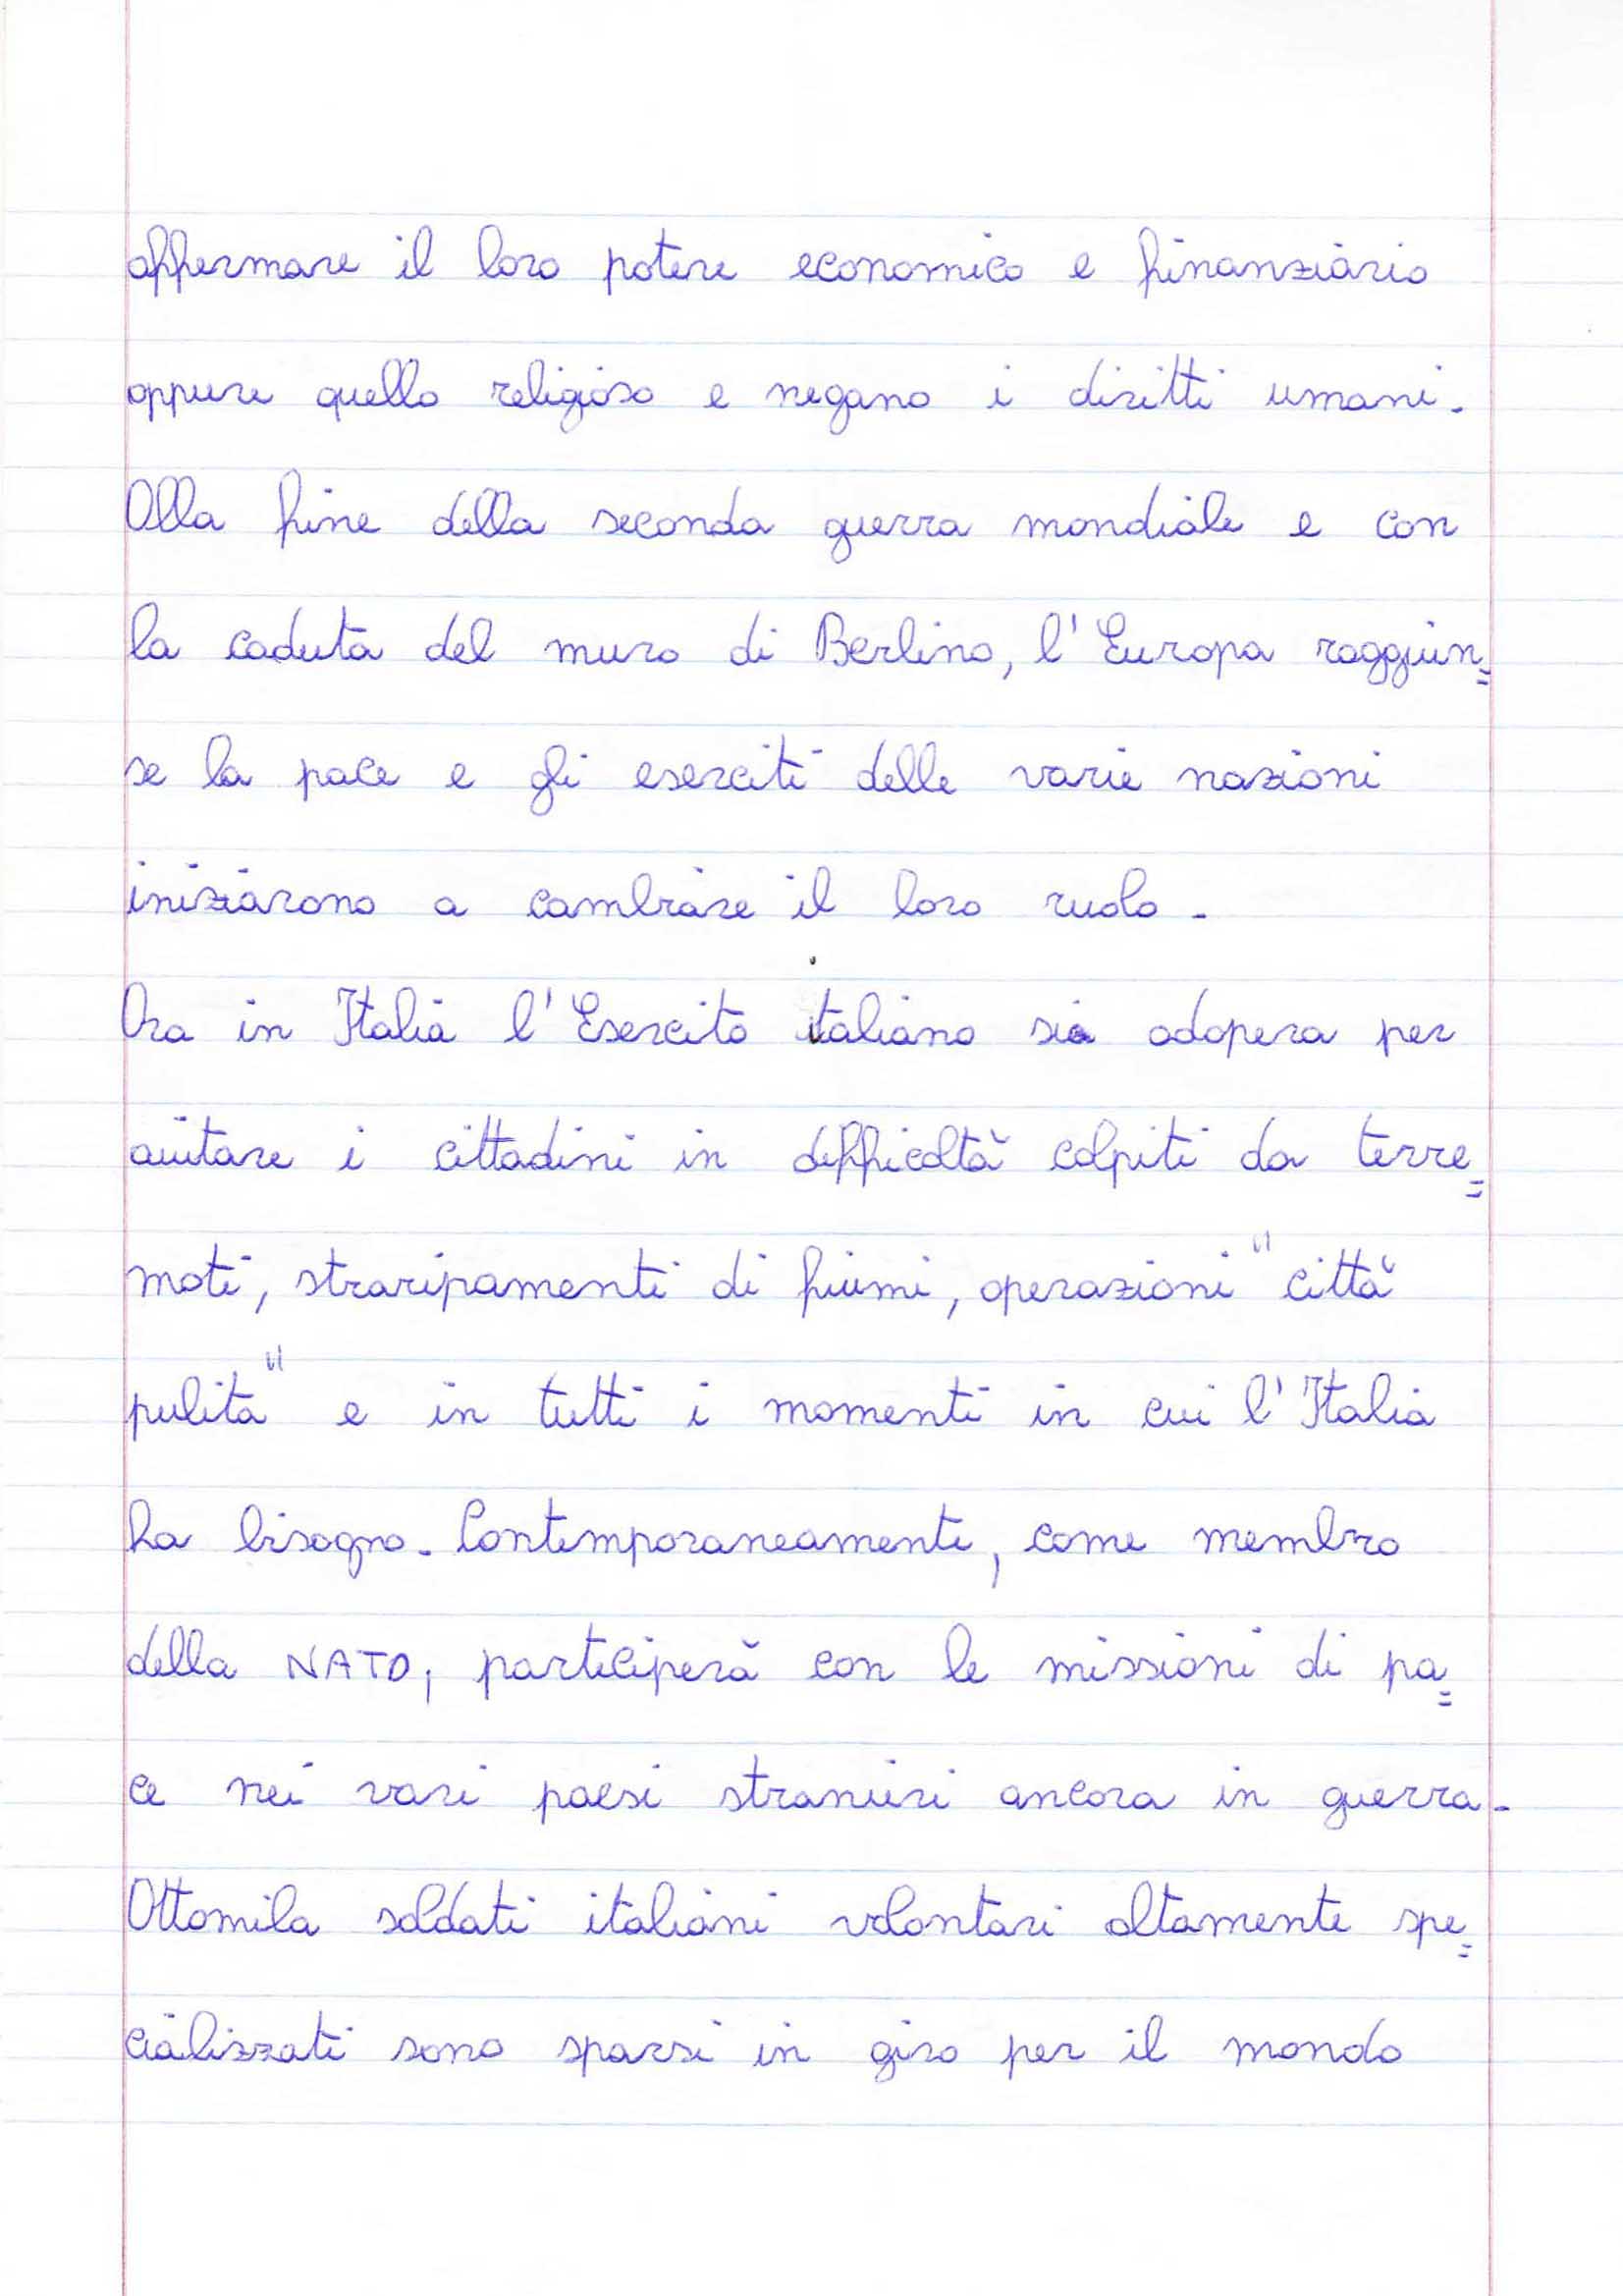 affermare il loro potere economico e finanziario
oppure quello religioso e negano i diritti umani.
Alla fine della seconda guerra mondiale e con
la caduta del muro di Berlino, l'Europa raggiun=
se la pace e gli eserciti delle varie nazioni
iniziarono a cambiare il loro ruolo.
Ora in Italia l'Esercito italiano sia adopera per
aiutare i cittadini in difficoltà colpiti da terre=
moti, straripamenti di fiumi, operazioni "città
pulita" e in tutti i momenti in cui l'Italia
ha bisogno. Contemporaneamente, come membro
della NATO, parteciperà con le missioni di pa=
ce nei vari paesi stranieri ancora in guerra.
Ottomila soldati italiani volontari altamente spe=
cializzati sono sparsi in giro per il mondo